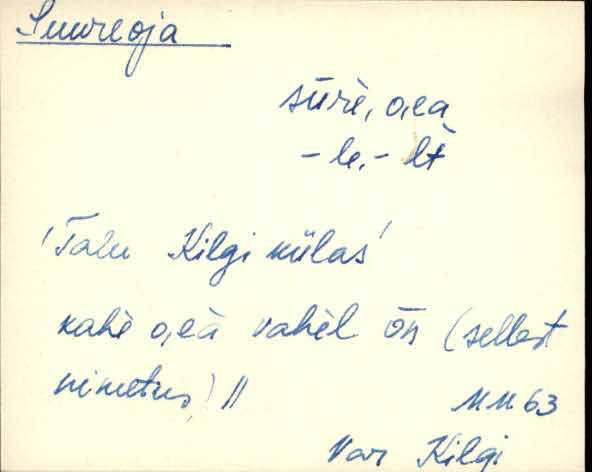 Suureoja
sūrè, o,ea
- le, - lt
'Talu Kilgi külas'
kahè o,eà vahèl ōn (sellest
nimetus) //
MM 63
Var Kilgi